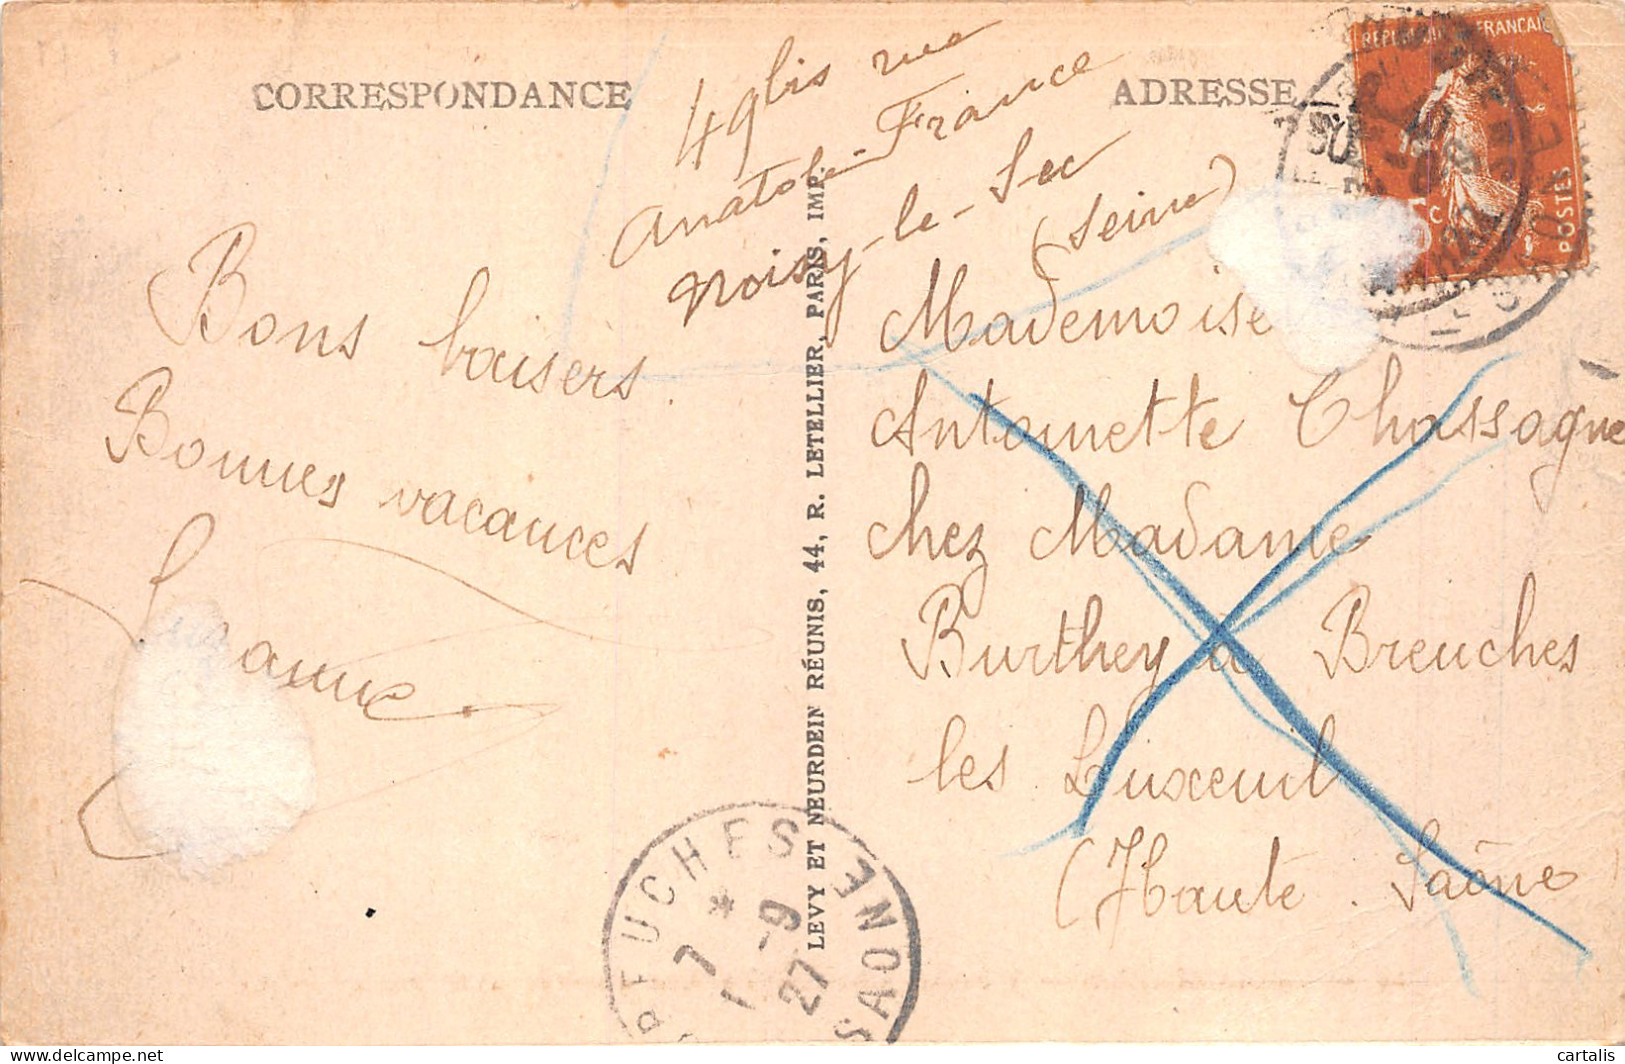 CORRESPONDANCE
ADRESSE
49bis rue
Anatole-France
Noisy-le-Sec
(Seine)
Bons baisers.
Bonnes vacances
LEVY ET NEURDEIN RÉUNIS, 44, R. LETELLIER, PARIS, IMP.
Mademoise
Antoinette Chassagne
chez Madame
Burthey à Breuches
les Luxeuil
(Haute. Saône
RÉPUBLIQUE FRANÇAISE
POSTES
BREUCHES
*
7
1 -9
27
SAONE
cartalis
delcampe.net